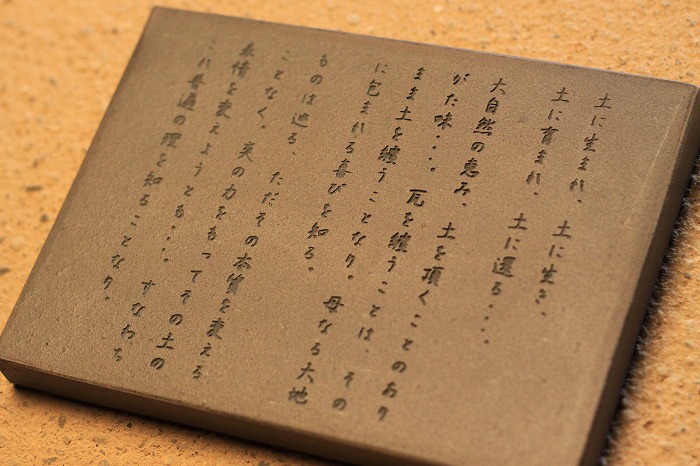 土に生まれ、土に生き、
土に育まれ、土に還る・・・
大自然の恵み、土を頂くことのあり
がた味・・・。瓦を纏うことは、その
まま土を纏うことなり。母なる大地
に包まれる喜びを知る。
ものは造る、ただその本質を変える
ことなく。炎の力をもってその土の
表情を変えようとも・・・すなわち
これ普遍の理を知ることなり。